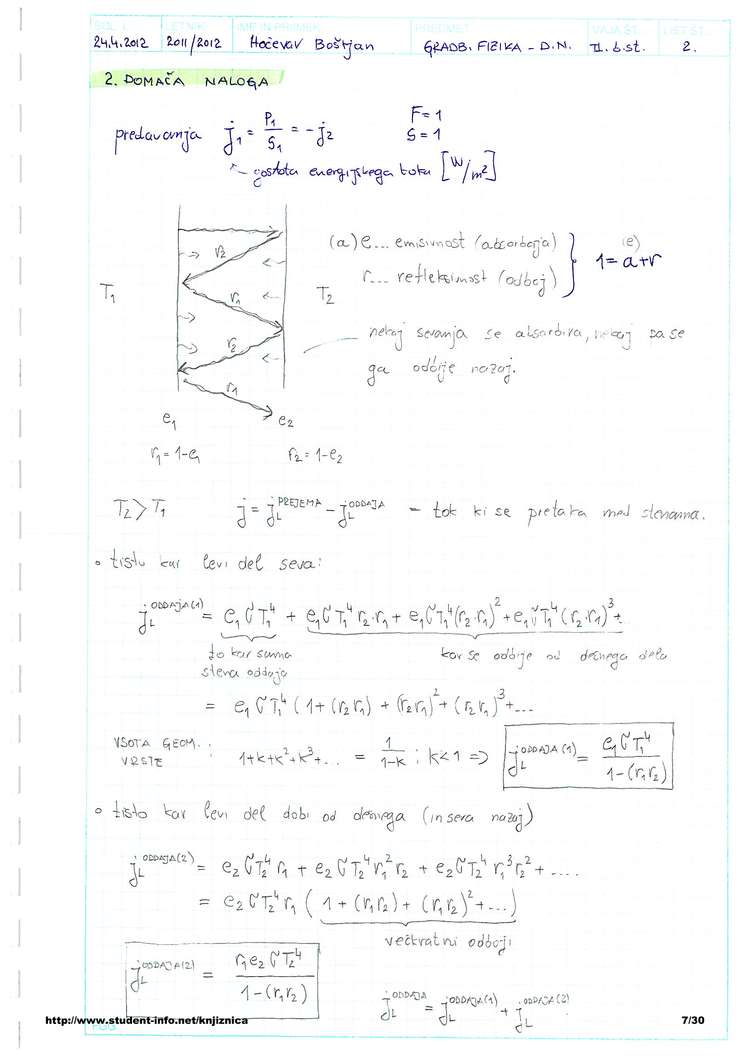 ŠOL. L. LETNIK IME IN PRIIMEK PREDMET VAJA ŠT. LIST ŠT.
24.4.2012 2011/2012 Hočevar Boštjan GRADB. FIZIKA - D.N. II. b.st. 2.
2. DOMAČA NALOGA
predavanja j₁ = P₁/S₁ = -j₂ F=1
S=1
gostota energijskega toka [W/m²]
(a) e... emisivnost (absorbcija)
r... refleksivnost (odboj)
(e)
1 = a+r
T₁ r₂ r₁ r₂ r₁ T₂
nekaj sevanja se absorbira, nekaj pa se
ga odbije nazaj.
e₁ e₂
r₁ = 1-e₁ r₂ = 1-e₂
T₂ > T₁ j = j_L^PREJEMA - j_L^ODDAJA - tok ki se pretaka med stenama.
• tistu kar levi del seva:
j_L^ODDAJA(1) = e₁σT₁⁴ + e₁σT₁⁴ r₂·r₁ + e₁σT₁⁴(r₂·r₁)² + e₁σT₁⁴(r₂·r₁)³+..
to kar sama
stena oddaja
kar se odbije od desnega dela
= e₁σT₁⁴ (1+(r₂r₁) + (r₂r₁)² + (r₂r₁)³+...
VSOTA GEOM. :
VRSTE
1+k+k²+k³+... = 1/(1-k) ; k<1 => j_L^ODDAJA(1) = e₁σT₁⁴/(1-(r₁r₂))
• tisto kar levi del dobi od desnega (in seva nazaj)
j_L^ODDAJA(2) = e₂σT₂⁴ r₁ + e₂σT₂⁴ r₁² r₂ + e₂σT₂⁴ r₁³ r₂² + ....
= e₂σT₂⁴ r₁ ( 1 + (r₁r₂) + (r₁r₂)² + ...)
večkratni odboji
j_L^ODDAJA(2) = r₁e₂σT₂⁴/(1-(r₁r₂))
j_L^ODDAJA = j_L^ODDAJA(1) + j_L^ODDAJA(2)
http://www.student-info.net/knjiznica 7/30